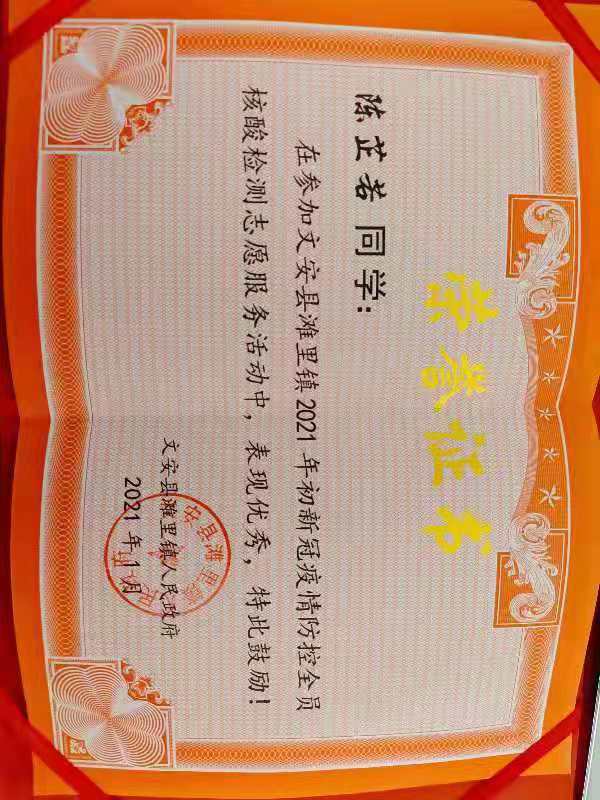 荣誉证书
陈芷若 同学：
在参加文安县滩里镇2021年初新冠疫情防控全员
核酸检测志愿服务活动中，表现优秀，特此鼓励！
文安县滩里镇人民政府
2021年1月